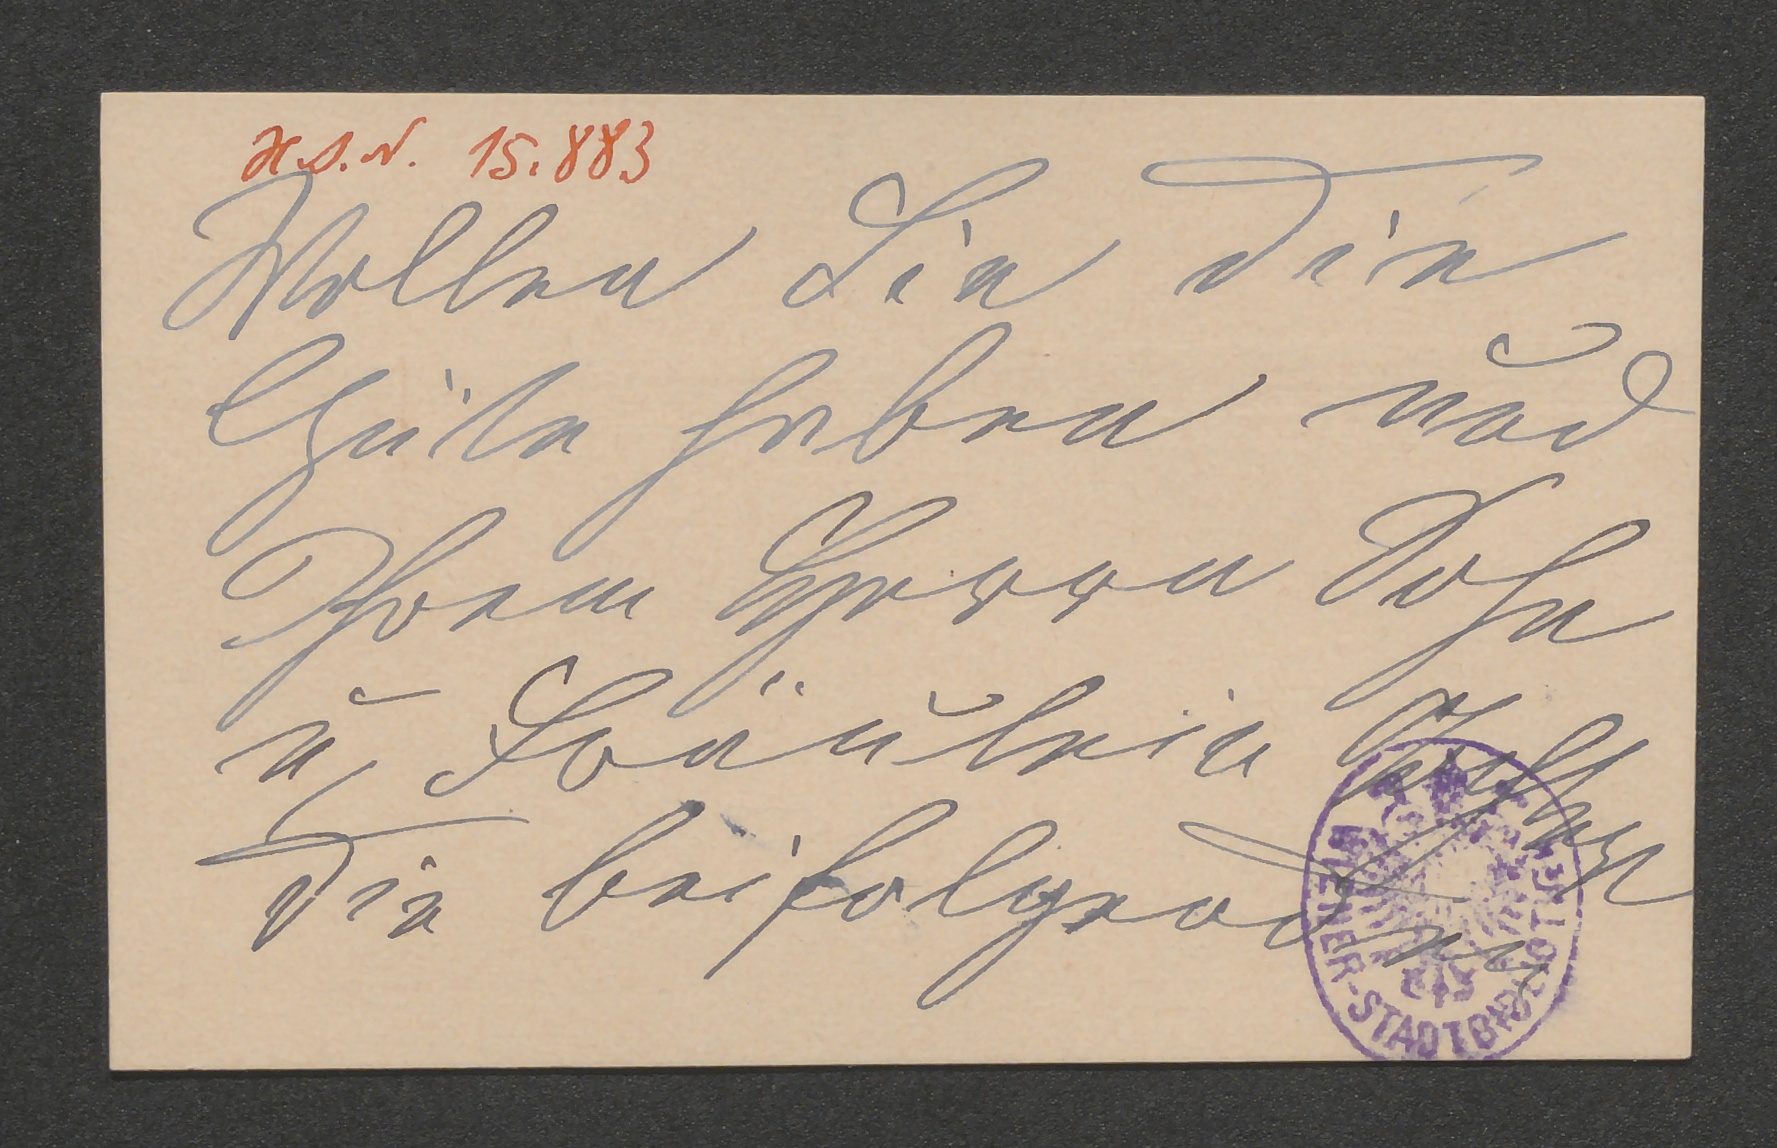 H.I.N. 15.883
Wollen Sie die
Güte haben und
Ihrem Herrn Sohn
u Fräulein Tochter
die beifolgenden
WIENER-STADTBIBLIOTHEK